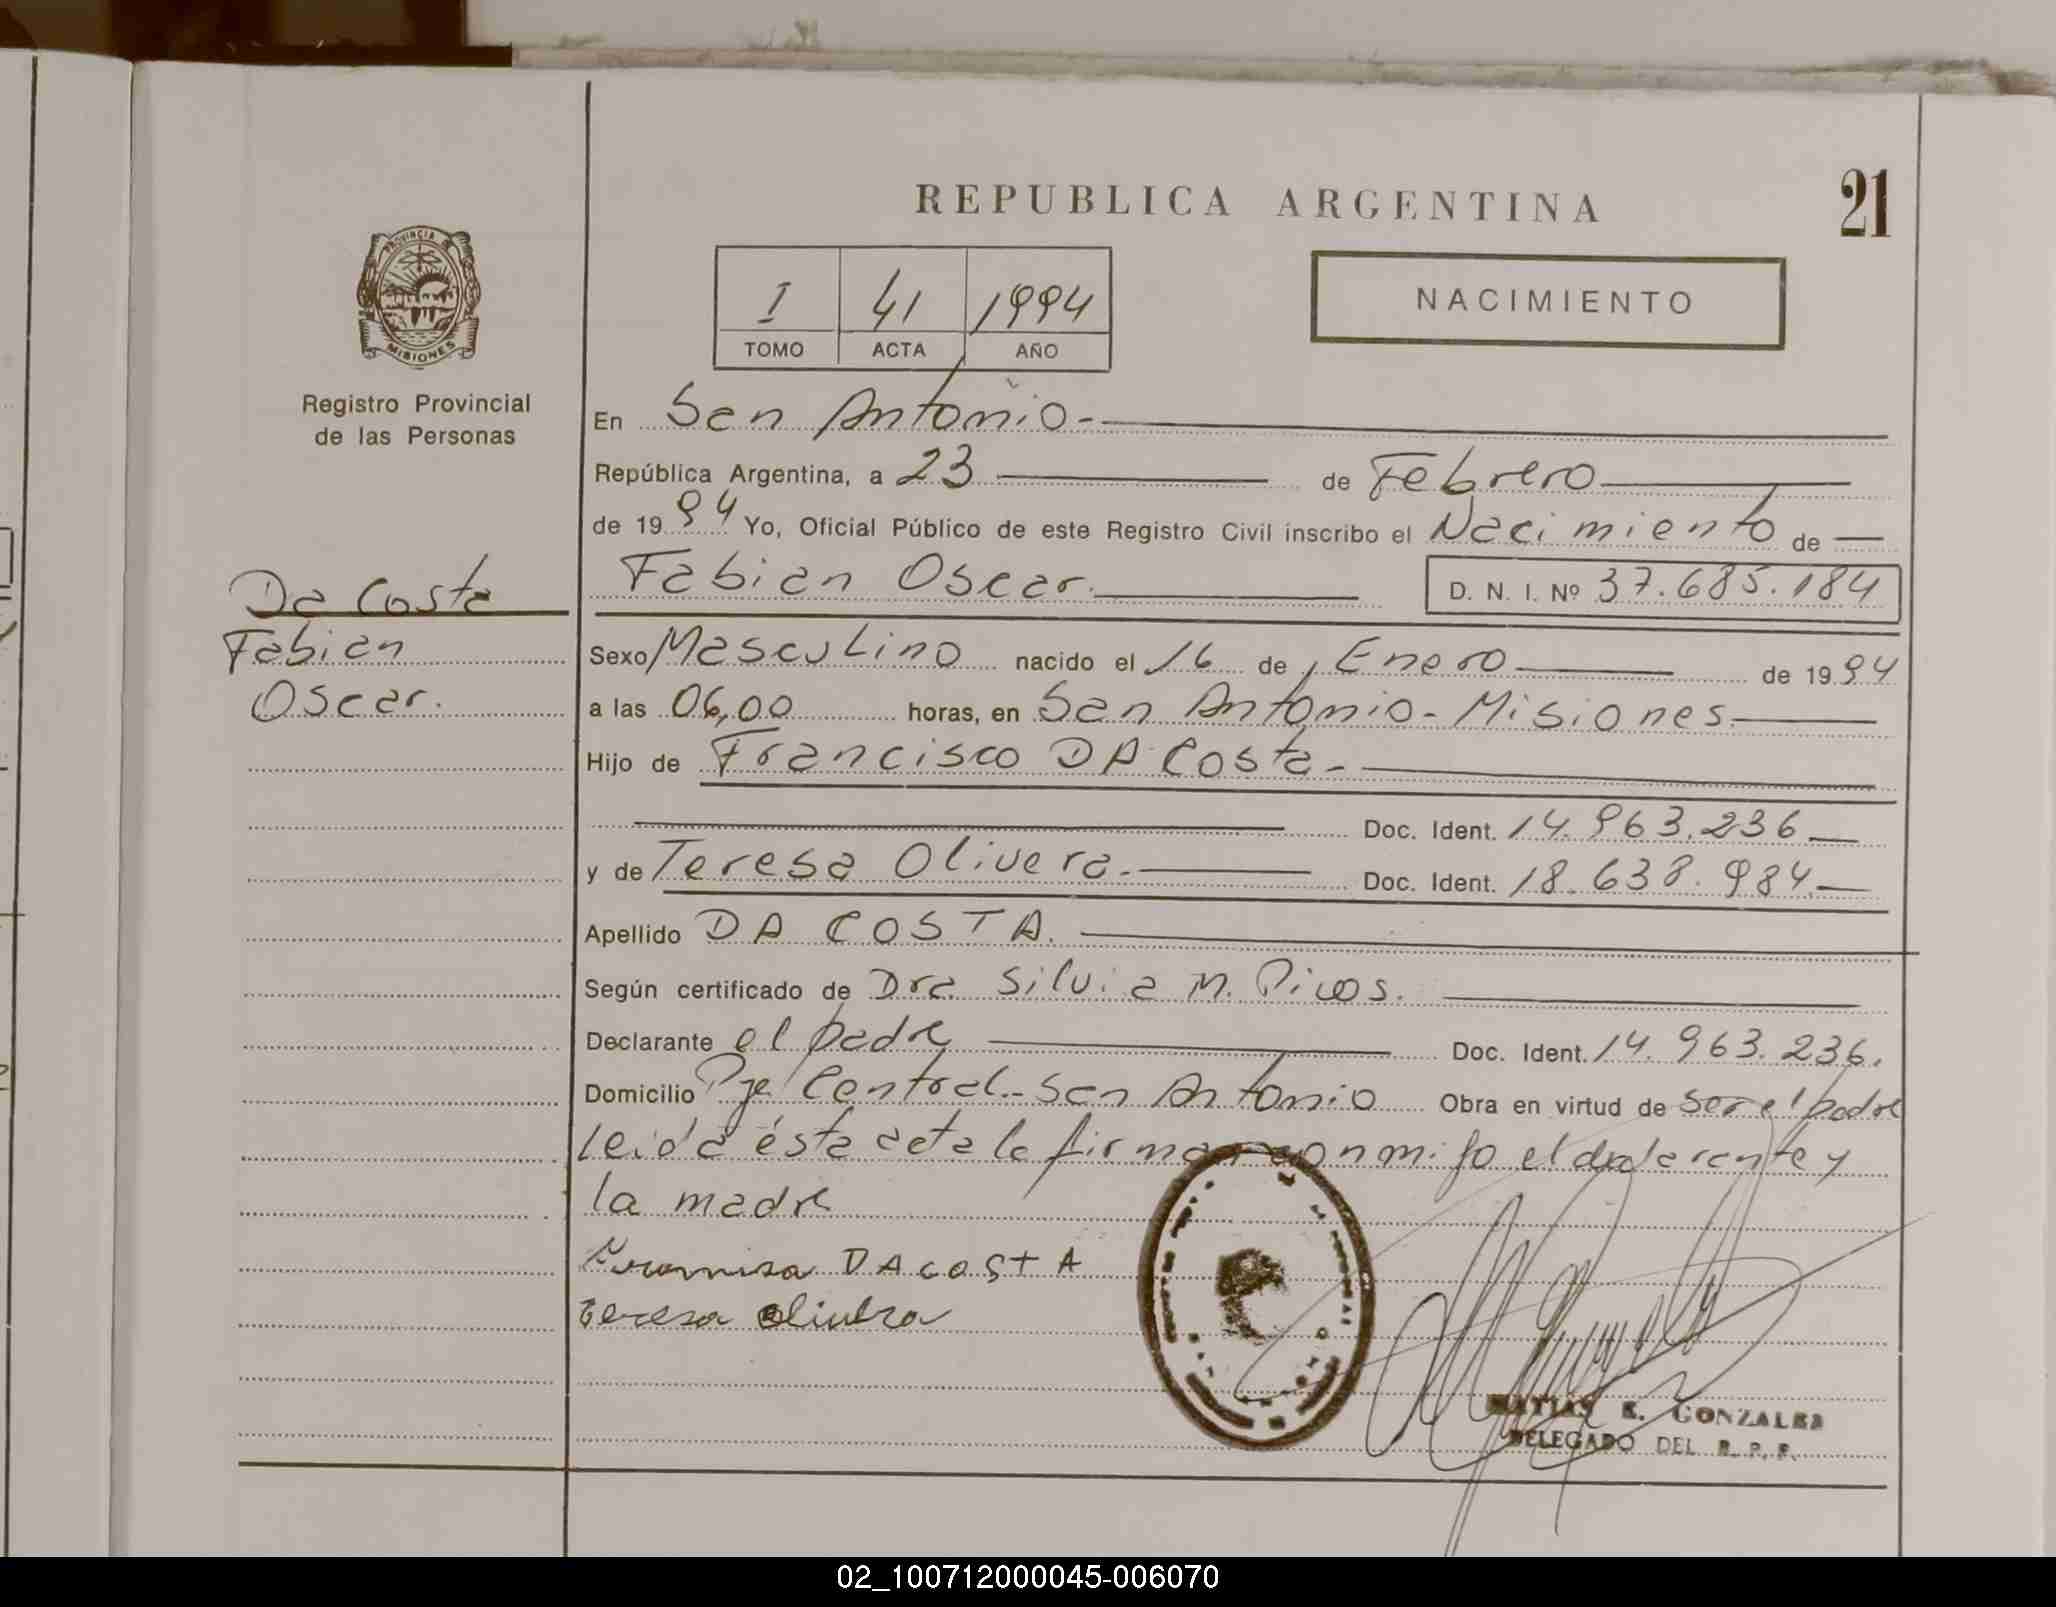 REPUBLICA ARGENTINA
21
PROVINCIA DE
MISIONES
Registro Provincial
de las Personas
I 41 1994
TOMO ACTA AÑO
NACIMIENTO
En San Antonio.-
República Argentina, a 23 de Febrero
de 1994 Yo, Oficial Público de este Registro Civil inscribo el Nacimiento de
Fabian Oscar. D. N. I. Nº 37.685.184
Da Costa
Fabian
Oscar.
Sexo Masculino nacido el 16 de Enero de 1994
a las 06,00 horas, en San Antonio - Misiones
Hijo de Francisco DA Costa -
Doc. Ident. 14.963.236
y de Teresa Olivera.- Doc. Ident. 18.638.984.
Apellido DA COSTA.
Según certificado de Dra. Silvia M.
Declarante el padre Doc. Ident. 14.963.236.
Domicilio Pje Central.- San Antonio Obra en virtud de ser el padre
leida ésta acta la firman conmigo el declarante y
la madre
DA COSTA
teresa olivera
MATIAS E. GONZALES
DELEGADO DEL R. P. P.
02_100712000045-006070